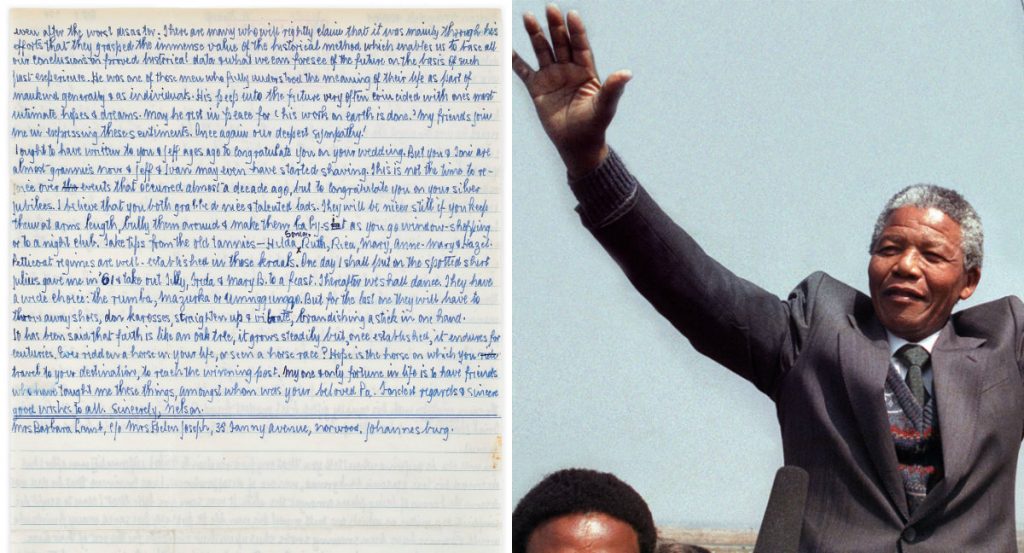 even after the worst disaster. There are many who will rightly claim that it was mainly through his
efforts that they grasped the immense value of the historical method which enables us to base all
our conclusions on proved historical data & what we can foresee of the future on the basis of such
past experience. He was one of those men who fully understood the meaning of their life as part of
mankind generally & as individuals. His peep into the future very often coincided with ones most
intimate hopes & dreams. May he rest in peace for 'his work on earth is done.' My friends join
me in expressing these sentiments. Once again our deepest sympathy!
I ought to have written to you & Jeff ages ago to congratulate you on your wedding. But you & Toni are
almost grannies now & Jeff & Ivan may even have started shaving. This is not the time to re-
joice over the events that occurred almost a decade ago, but to congratulate you on your silver
jubilees. I believe that you both grabbed nice & talented lads. They will be nicer still if you keep
them at arms length, bully them around & make them baby-sit as you go window-shopping
or to a night club. Take tips from the old tannies — Hilda, Ruth, Rica, Mary, Anne-Mary & Hazel.
Petticoat regimes are well-established in those kraals. One day I shall put on the spotted shirt
Julius gave me in '61 & take out Tilly, Greta & Mary B. to a feast. Thereafter we shall dance. They have
a wide choice: the rumba, mazurka or But for the last one they will have to
throw away shoes, don karosses, straighten up & vibrate, brandishing a stick in one hand.
It has been said that faith is like an oak tree, it grows steadily but, once established, it endures for
centuries. Ever ridden a horse in your life, or seen a horse race? Hope is the horse on which you
travel to your destination, to reach the winning post. My one & only fortune in life is to have friends
who have taught me these things, amongst whom was your beloved Pa. Fondest regards & sincere
good wishes to all. Sincerely, Nelson.
Mrs Barbara Lamb, c/o Mrs Helen Joseph, 35 Fanny avenue, Norwood, Johannesburg.